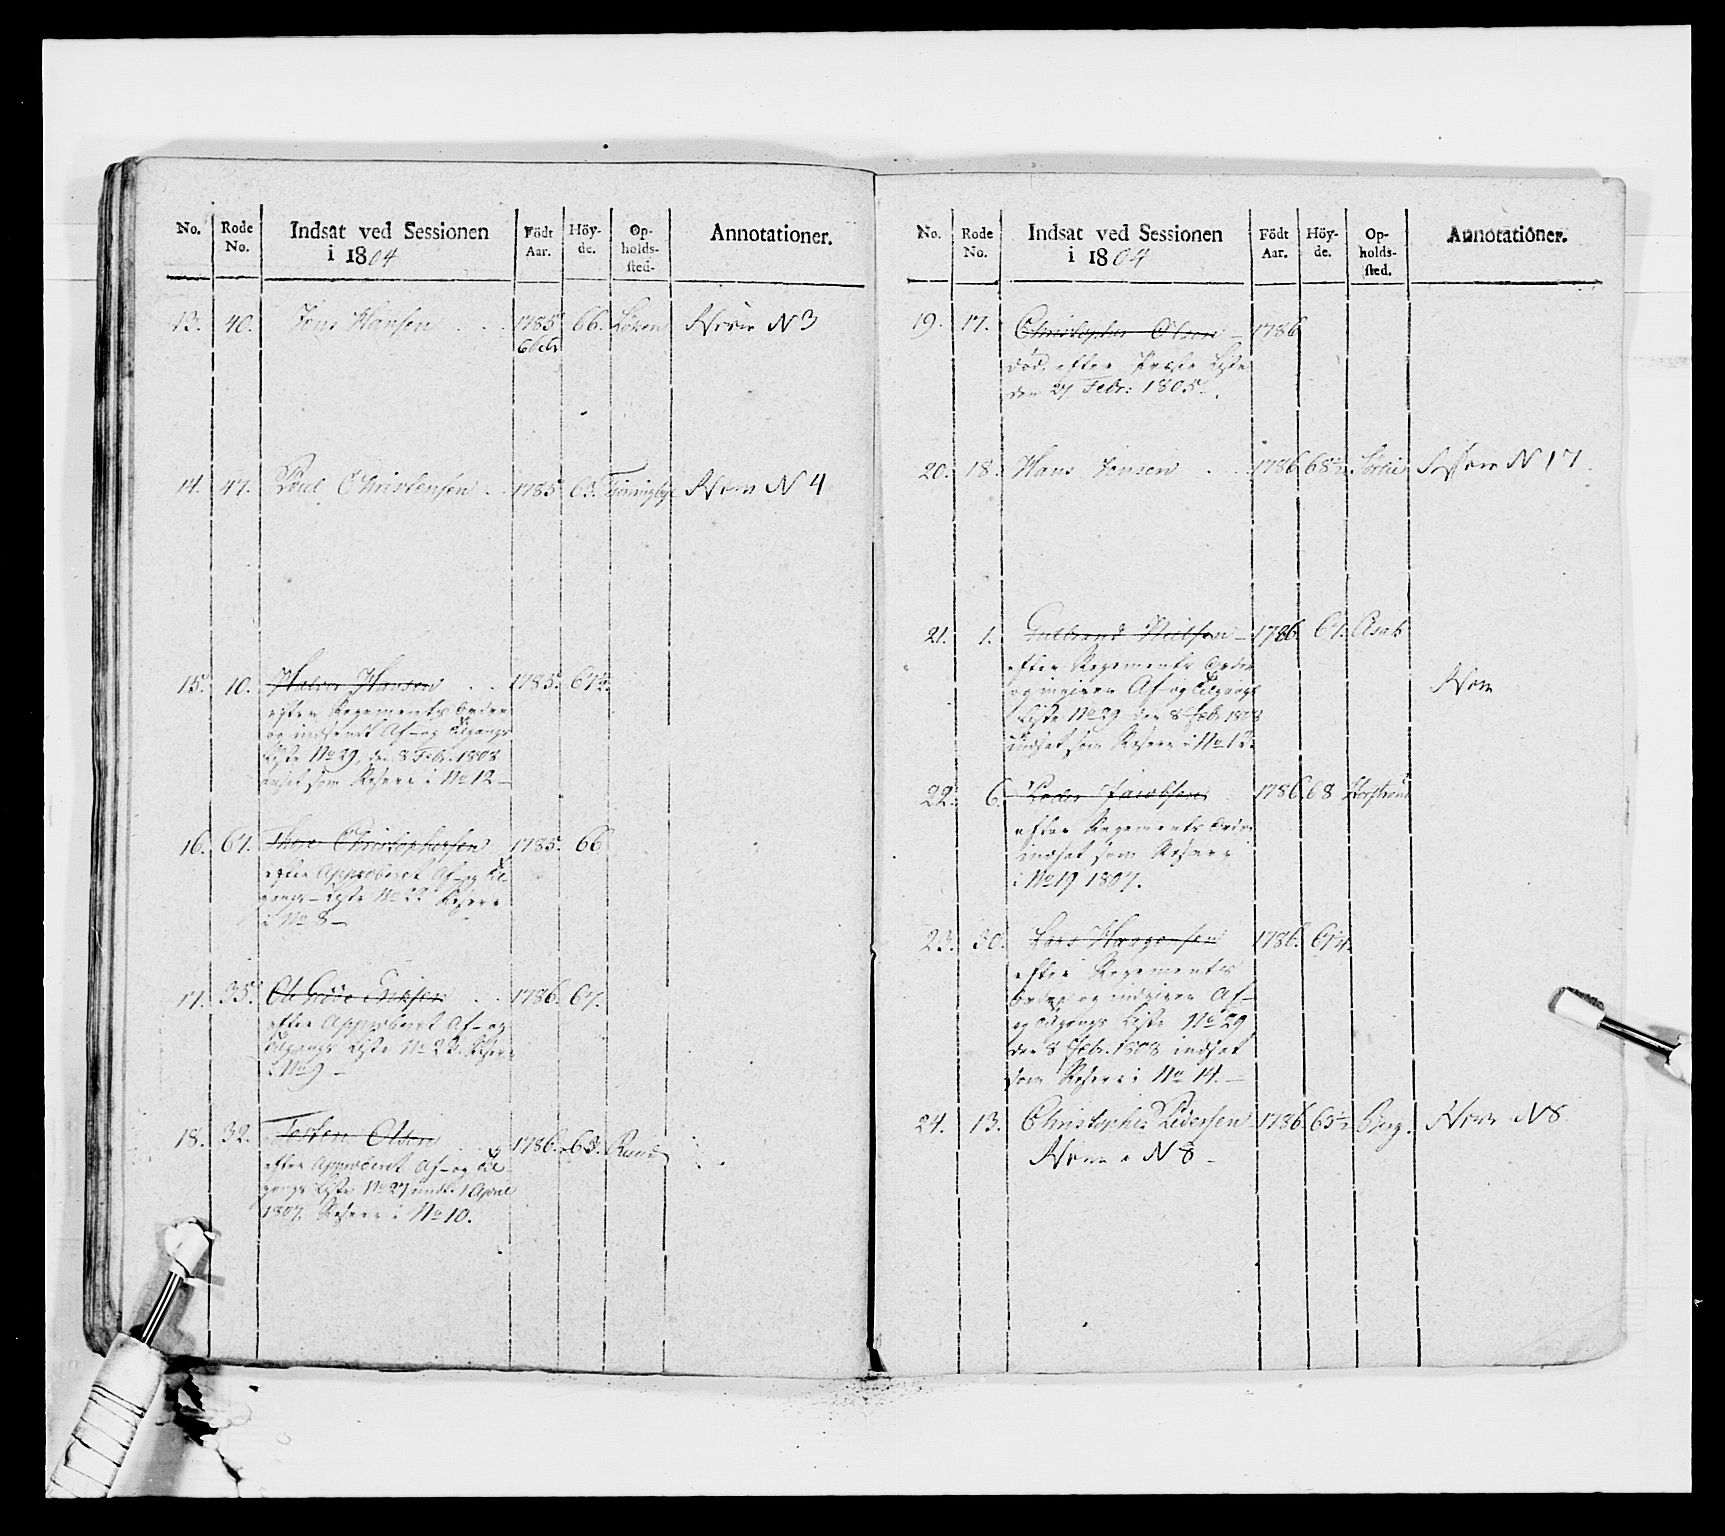 No. Rode No. Indsat ved Sessionen i 1804 Födt Aar. Höy-de. Op-holds-sted. Annotationer.
13. 40. Jens Hansen 1785 66. N 3
14. 47. Poul Christensen 1785 65. N 4
15. 10. Halvor Hansen 1785.
efter Regements Ordre
og indsendt Af- og Tilgangs
Liste No 29, den 8 Febr. 1808
som Reserv i No 12 –
16. 67. Christophersen 1785. 66
efter Approberet Af- og Til-
gangs-Liste No 22 Reserv
i No 8 –
17. 35. Ole Eriksen 1786. 67.
efter Approberet Af- og
Tilgangs Liste No 23. Reserv
i No 9 –
18. 32. Torsten Olsen 1786. 63. Rund
efter Approberet Af- og Til-
gangs Liste No 27 1 April
1807. Reserv i No 10.
No. Rode No. Indsat ved Sessionen i 1804 Födt Aar. Höy-de. Op-holds-sted. Annotationer.
19. 17. Christopher Olsen – 1786
död. efter Liste
den 27 Febr: 1805.
20. 18. Hans Jensen 1786 68½ N 17
21. 1. Gulbrand Nielsen – 1786. 67.
efter Regements Ordre
og ingiven Af- og Tilgangs
Liste No 29 den 8 Febr 1808
indsat som Reserv i No 13.
22. 6. Peder Jacobsen 1786. 68
efter Regements Ordre
indsat som Reserv
i No 19 1807.
23. 30. Lars 1786.
efter Regements
Ordre og indgiven Af-
og Tilgangs Liste No 29
den 8 Febr. 1808 indsat
som Reserv i No 14. –
24. 13. Christopher Pedersen 1786 65½ Berg. N 8
N 8 –